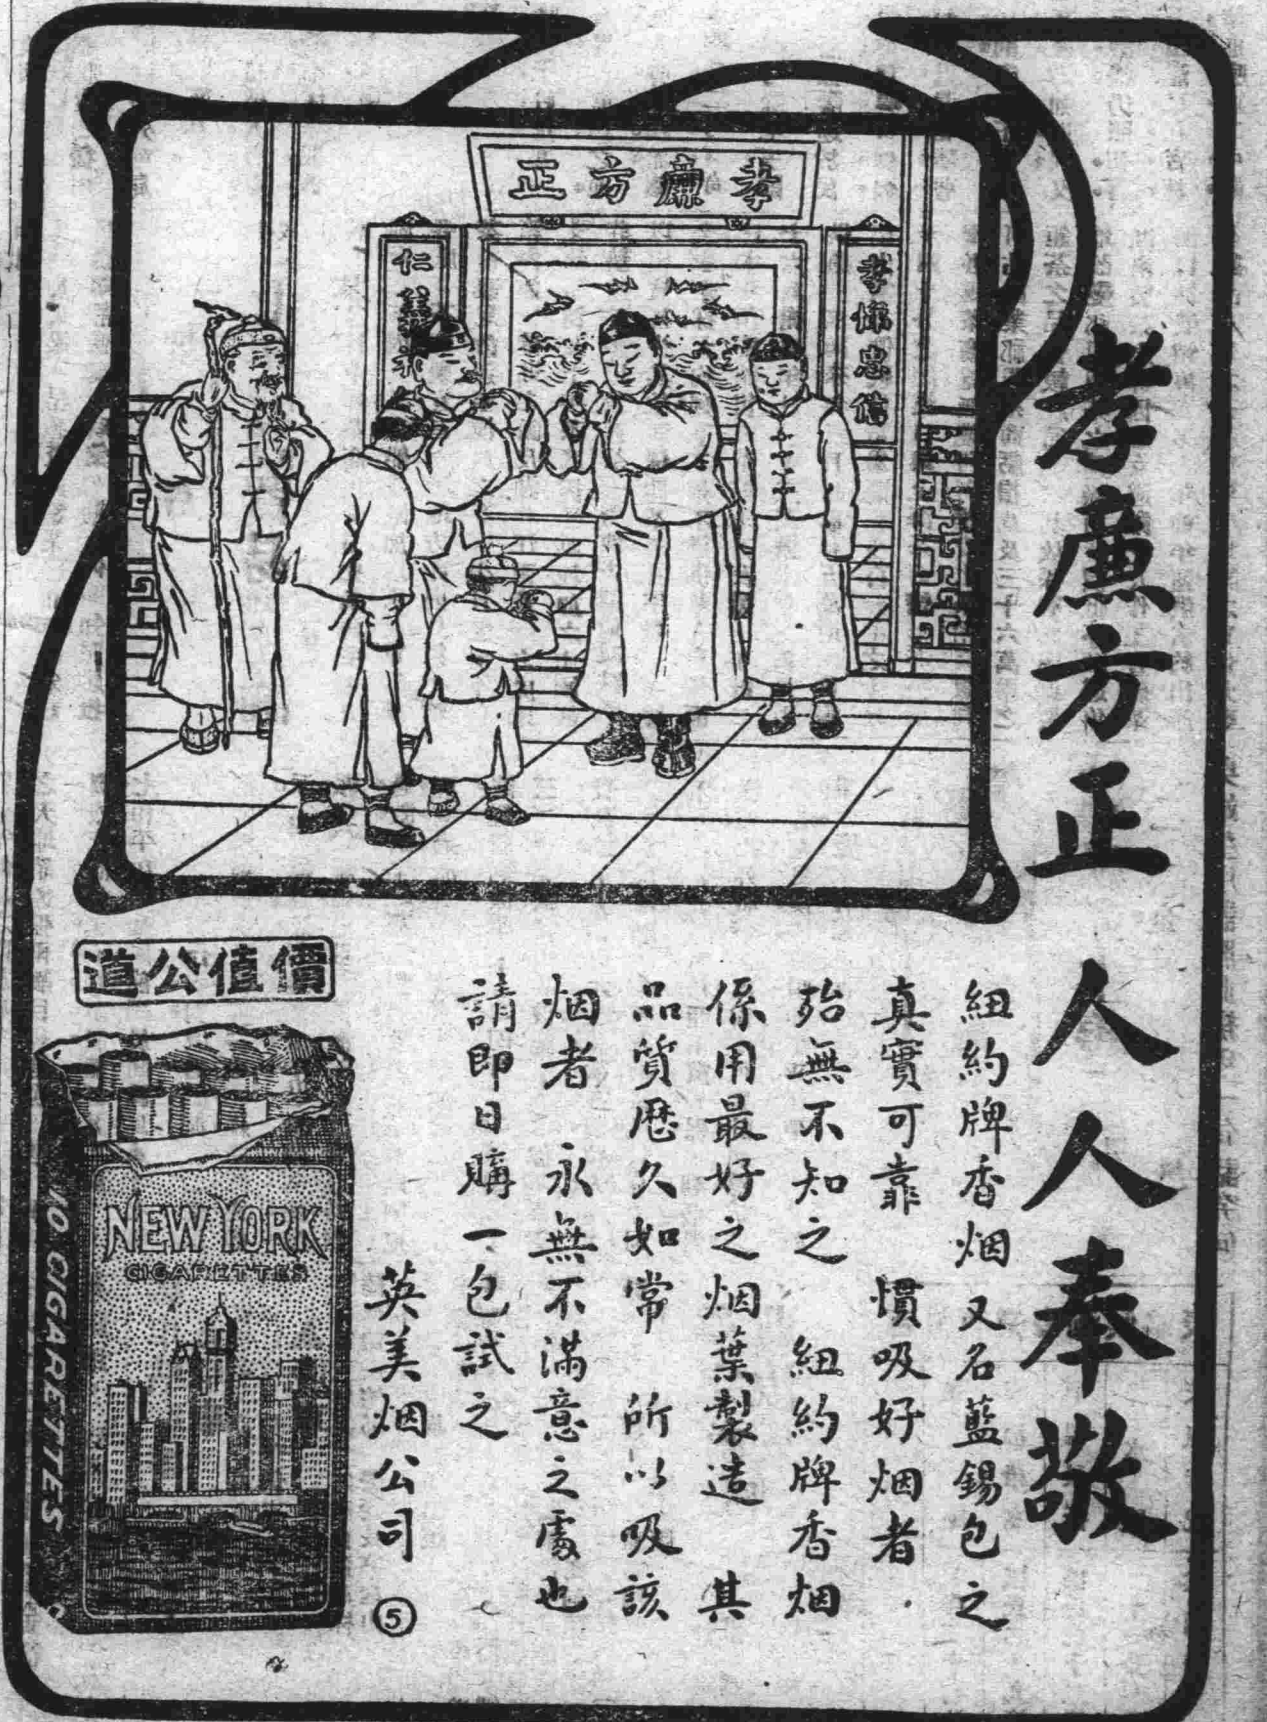 孝廉方正 人人奉敬
孝廉方正
孝悌忠信
仁義礼
紐約牌香烟 又名藍錫包之
真實可靠 慣吸好烟者
殆無不知之 紐約牌香烟
係用最好之烟葉製造 其
品質歷久如常 所以吸該
烟者 永無不滿意之處也
請即日購一包試之
英美烟公司 ⑤
價值公道
NEW YORK
CIGARETTES
10 CIGARETTES